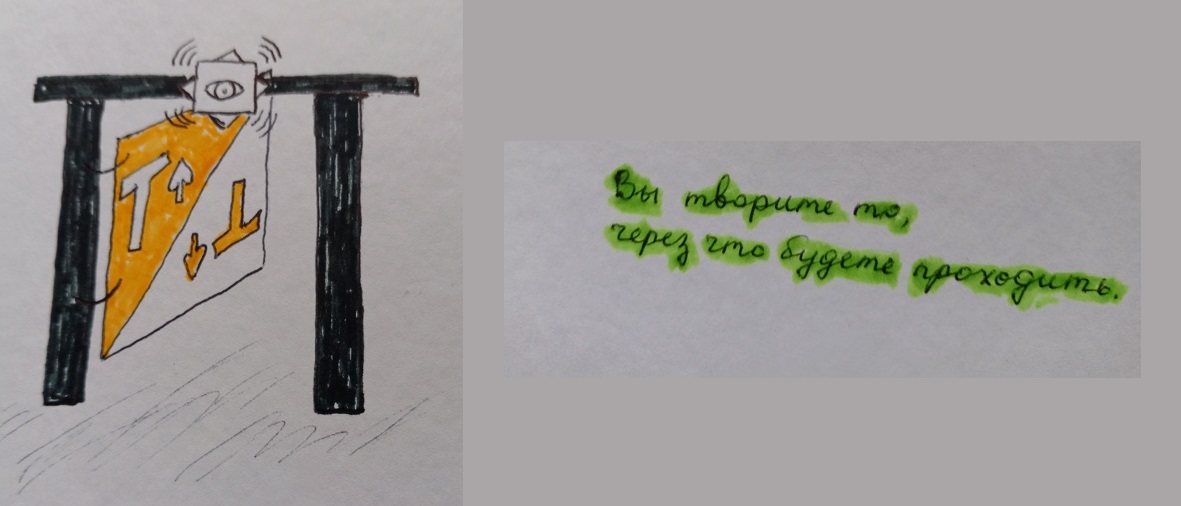 T
T
Вы творите то,
через что будете проходить.